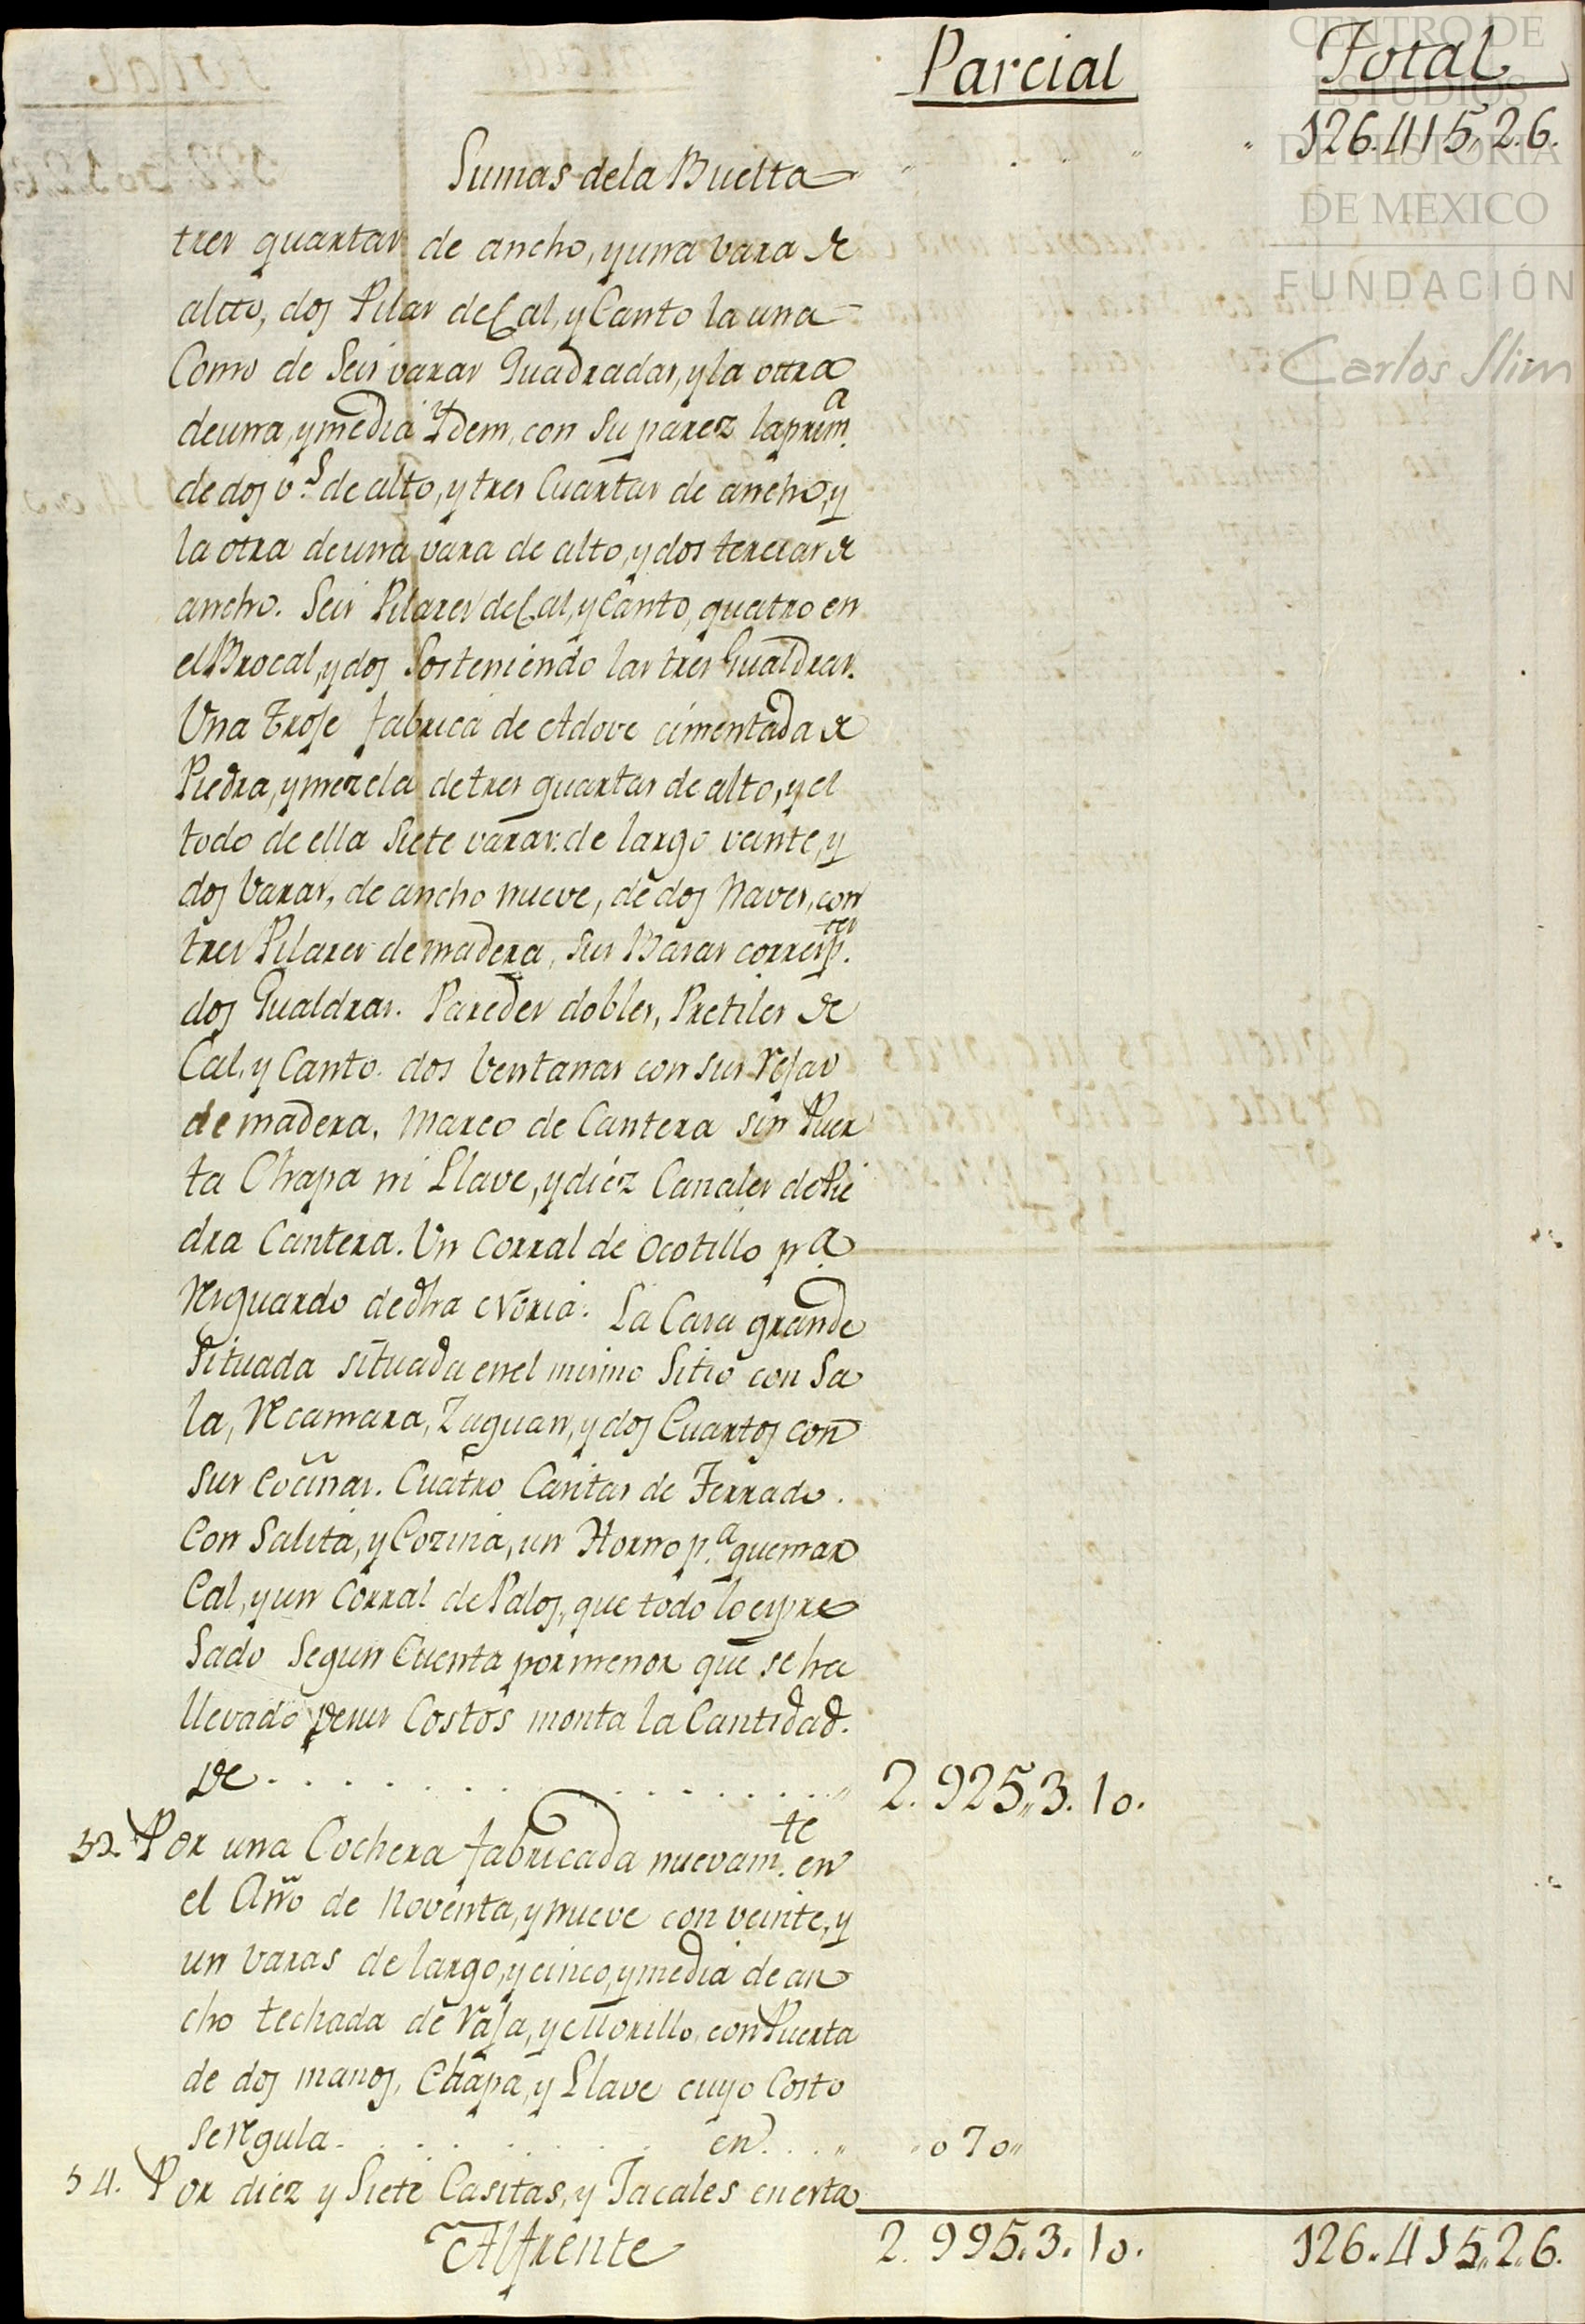 Parcial Total
126.415,,2.6.
Sumas dela Buelta
tres quartas de ancho, y una vara de
altto, dos Pilas de Cal, y Canto la una
Como de Seis varas Quadradas, y la ottra
de una, y media Ydem, con su parez la prim.ª
de dos v.s de alto, y tres Cuartas de ancho, y
la otra de una vara de alto, y dos tercias de
ancho. Seis Pilares de Cal, y Canto, quatro en
el Brocal, y dos Sosteniendo las tres Gualdras.
Una Troje fabrica de Adove cimentada de
Piedra, y mezcla de tres quartas de alto, y el
todo de ella Siete varas: de largo veinte, y
dos Varas, de ancho nueve, de dos Naves, con
tres Pilares de madera, Sus Basas corresp.tes
dos Gualdras. Paredes dobles, Pretiles de
Cal, y Canto. dos Ventanas con sus rejas
de madera, Marco de Cantera sin Puer
ta Chapa ni Llave, y diéz Canales de Pie
dra Cantera. Un Corral de Ocotillo p.ª
resguardo de dha Noria. La Casa grande
Situada situada en el mismo Sitio con Sa
la, Recamara, Zaguan, y dos Cuartos con
sus Cocinas. Cuatro Casitas de Terrado.
Con Salita, y Cozina, un Horno p.ª quemar
Cal, y un Corral de Palos, que todo lo expre
Sado Segun Cuenta pormenor que se ha
llevado de sus Costos monta la Cantidad.
de . . . . . . . . . . . . . . . 2.925,,3.10.
53. Por una Cochera fabricada nuevam.te en
el Año de Noventa, y nueve con veinte, y
un varas de largo, y cinco, y media de an
cho techada de Vaja, y Morillo, con Puerta
de dos manos, Chapa, y Llave cuyo Costo
se regula . . . . . . . . en . . . ,, ,,070,,
54. Por diéz y Siete Casitas, y Jacales en esta
Al frente 2.995.3.10. 126.415,,2.6.
CENTRO DE
ESTUDIOS
DE HISTORIA
DE MEXICO
FUNDACIÓN
Carlos Slim